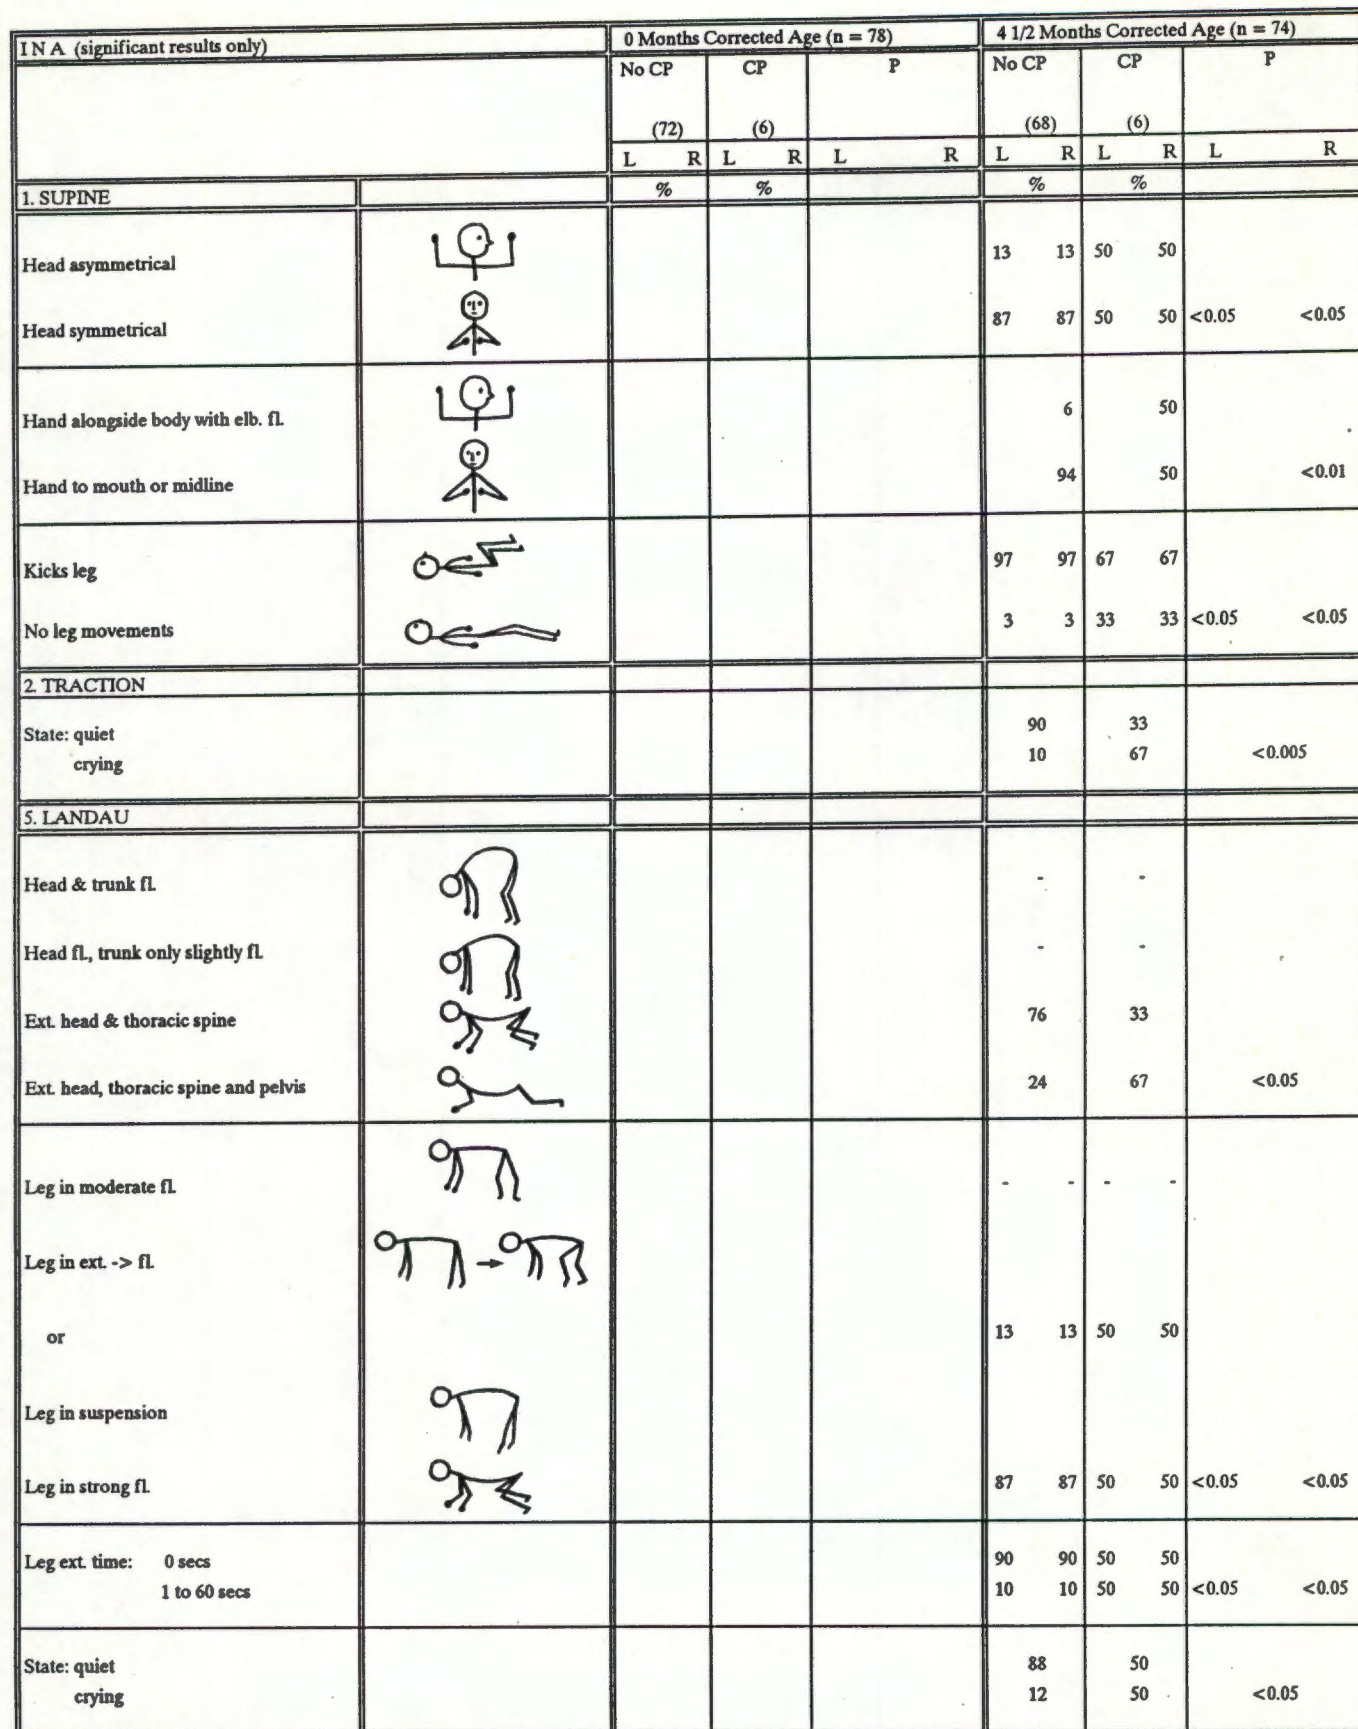 I N A (significant results only) 0 Months Corrected Age (n = 78) 4 1/2 Months Corrected Age (n = 74)
No CP CP P No CP CP P
(72) (6) (68) (6)
L R L R L R L R L R L R
1. SUPINE % % % %
Head asymmetrical 13 13 50 50
Head symmetrical 87 87 50 50 <0.05 <0.05
Hand alongside body with elb. fl. 6 50
Hand to mouth or midline 94 50 <0.01
Kicks leg 97 97 67 67
No leg movements 3 3 33 33 <0.05 <0.05
2. TRACTION
State: quiet 90 33
crying 10 67 <0.005
5. LANDAU
Head & trunk fl. - -
Head fl., trunk only slightly fl. - -
Ext. head & thoracic spine 76 33
Ext. head, thoracic spine and pelvis 24 67 <0.05
Leg in moderate fl. - - - -
Leg in ext. -> fl.
or 13 13 50 50
Leg in suspension
Leg in strong fl. 87 87 50 50 <0.05 <0.05
Leg ext. time: 0 secs 90 90 50 50
1 to 60 secs 10 10 50 50 <0.05 <0.05
State: quiet 88 50
crying 12 50 <0.05